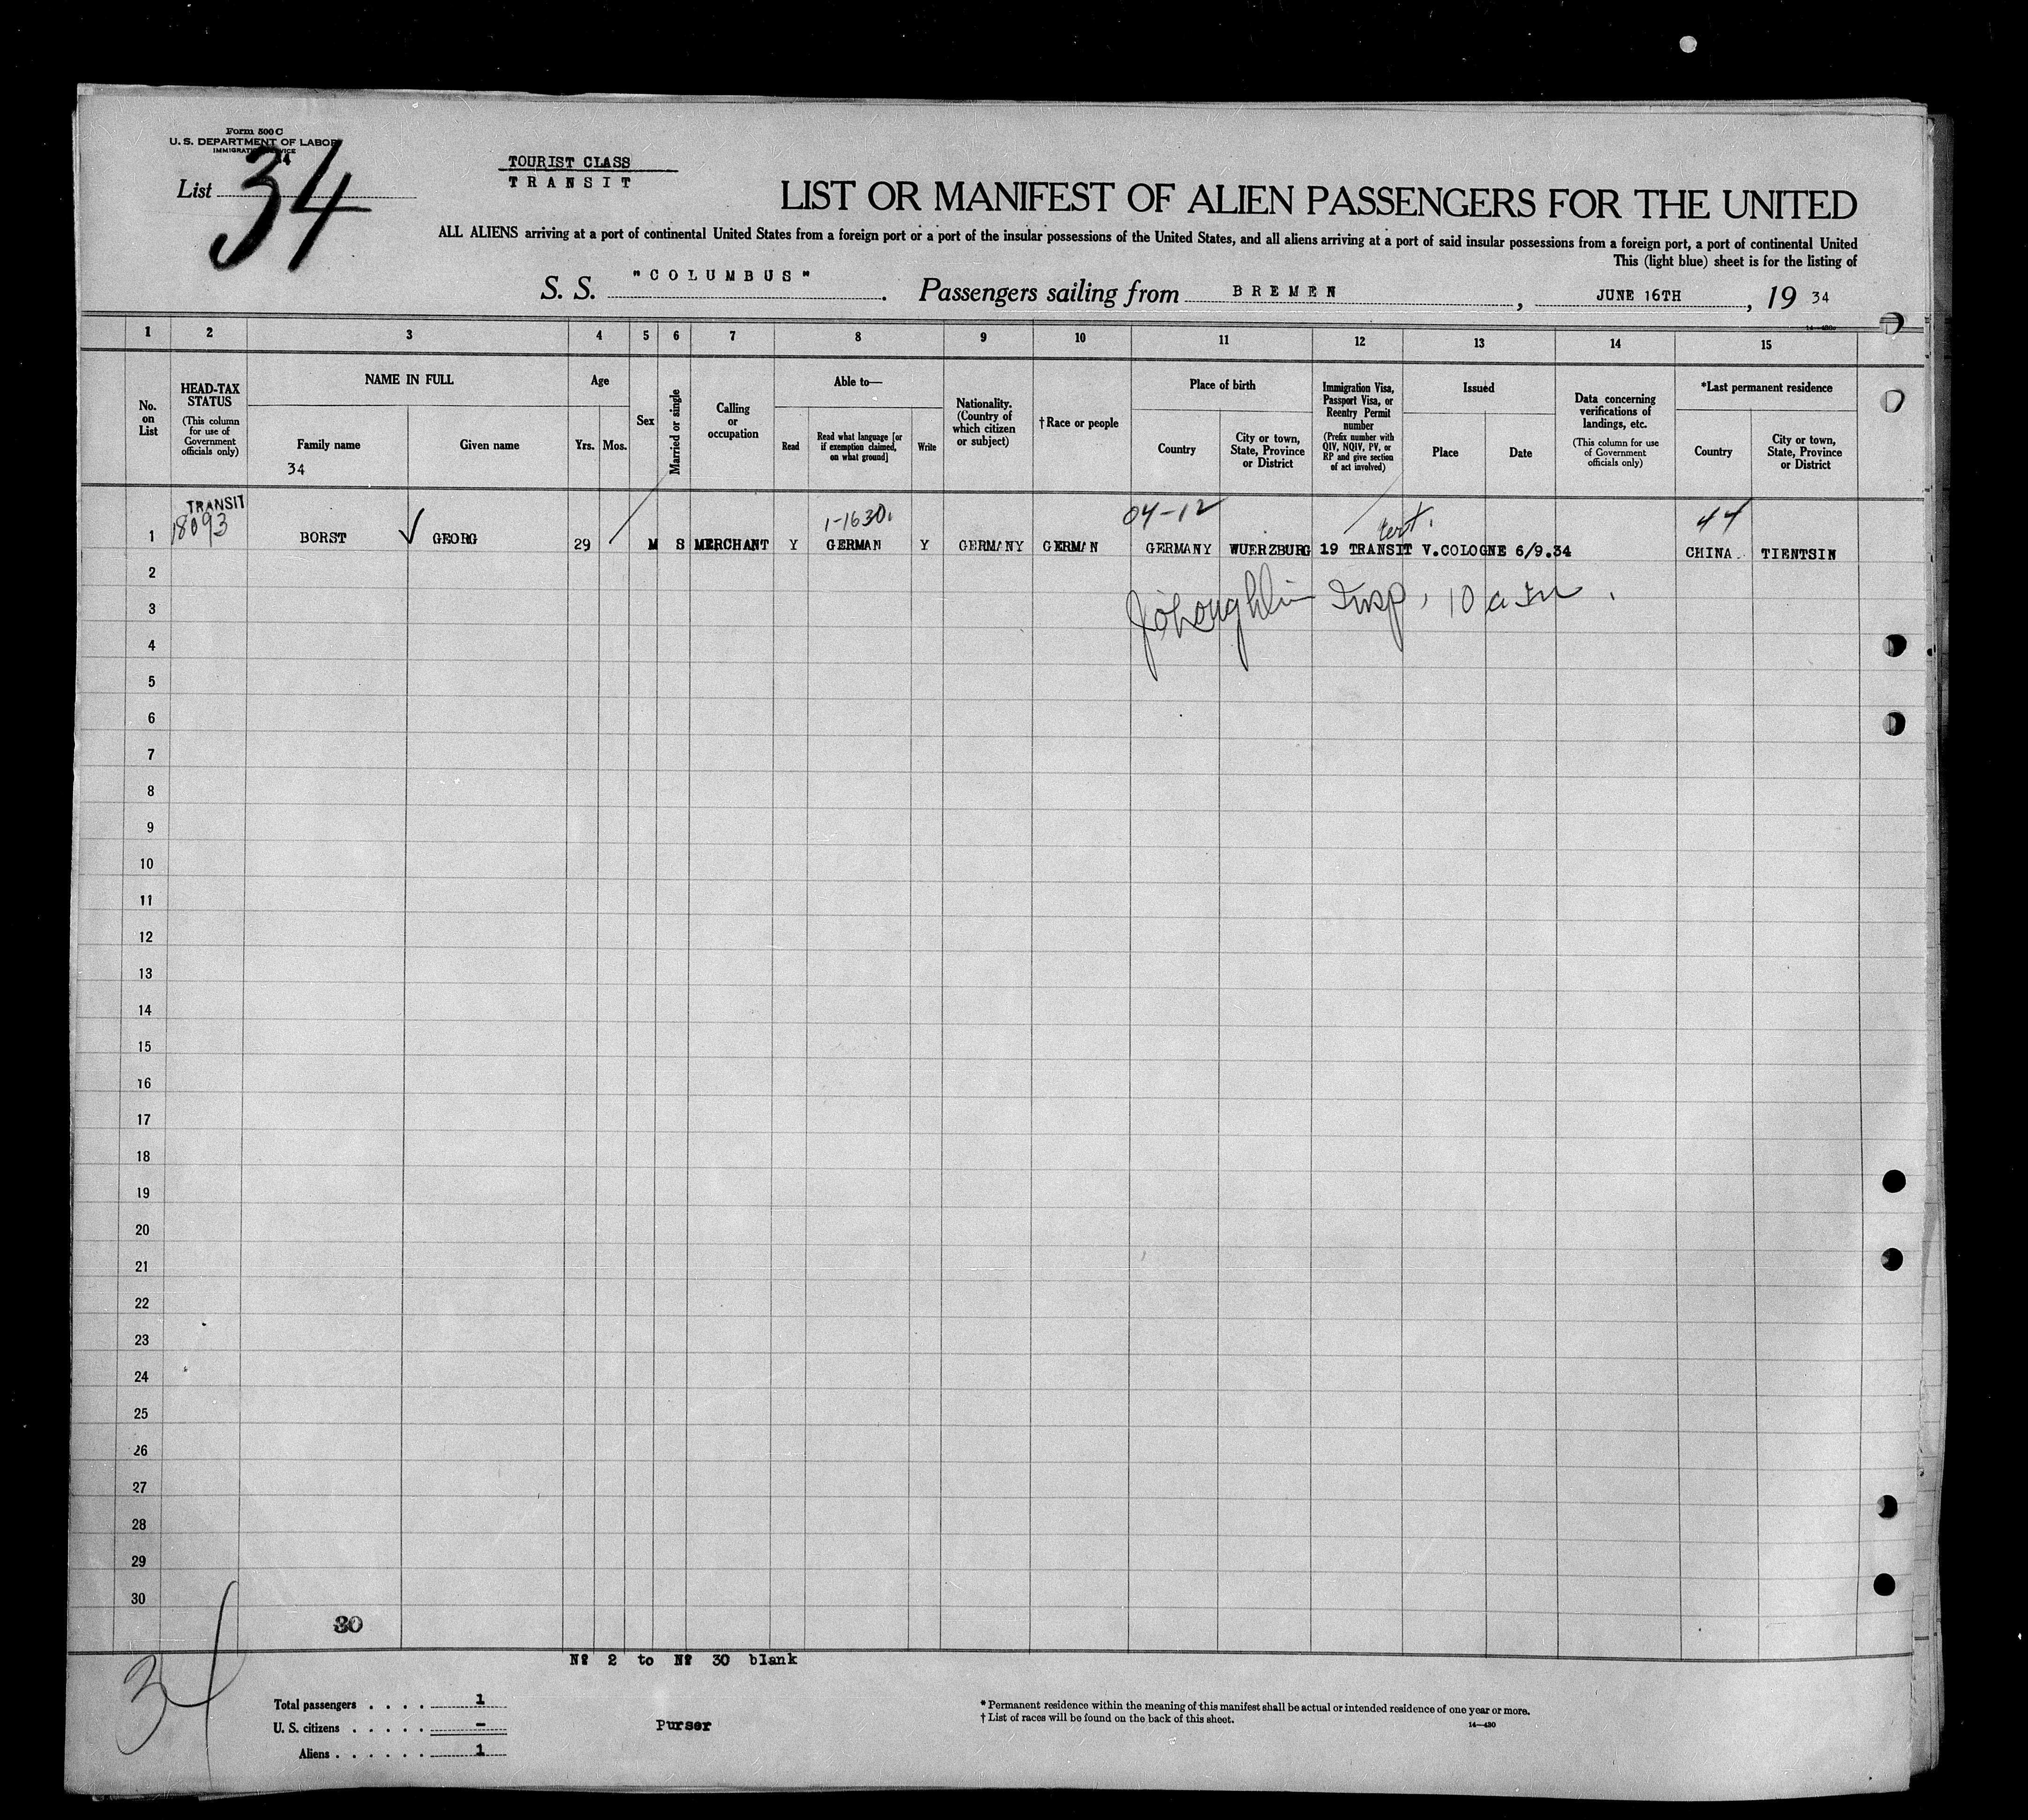 Form 500 C
U. S. DEPARTMENT OF LABOR
IMMIGRATION SERVICE
List 34
TOURIST CLASS
TRANSIT
LIST OR MANIFEST OF ALIEN PASSENGERS FOR THE UNITED
ALL ALIENS arriving at a port of continental United States from a foreign port or a port of the insular possessions of the United States, and all aliens arriving at a port of said insular possessions from a foreign port, a port of continental United
This (light blue) sheet is for the listing of
S. S. "COLUMBUS". Passengers sailing from BREMEN, JUNE 16TH, 19 34
14—430a
1 2 3 4 5 6 7 8 9 10 11 12 13 14 15
No. on List
HEAD-TAX STATUS
(This column for use of Government officials only)
NAME IN FULL
Family name
Given name
34
Age
Yrs. Mos.
Sex
Married or single
Calling or occupation
Able to—
Read
Read what language [or if exemption claimed, on what ground]
Write
Nationality. (Country of which citizen or subject)
† Race or people
Place of birth
Country
City or town, State, Province or District
Immigration Visa, Passport Visa, or Reentry Permit number
(Prefix number with QIV, NQIV, PV, or RP and give section of act involved)
Issued
Place
Date
Data concerning verifications of landings, etc.
(This column for use of Government officials only)
*Last permanent residence
Country
City or town, State, Province or District
TRANSIT
18093
1-1630.
04-12
44
1 BORST √ GEORG 29 M S MERCHANT Y GERMAN Y GERMANY GERMAN GERMANY WUERZBURG 19 TRANSIT V.COLOGNE 6/9.34 CHINA TIENTSIN
2
J O'Loughlin Insp,
3
4
5
6
7
8
9
10
11
12
13
14
15
16
17
18
19
20
21
22
23
24
25
26
27
28
29
30
30
Nº 2 to Nº 30 blank
34
Total passengers . . . . 1
U. S. citizens . . . . . –
Aliens . . . . . . 1
Purser
* Permanent residence within the meaning of this manifest shall be actual or intended residence of one year or more.
† List of races will be found on the back of this sheet.
14—430